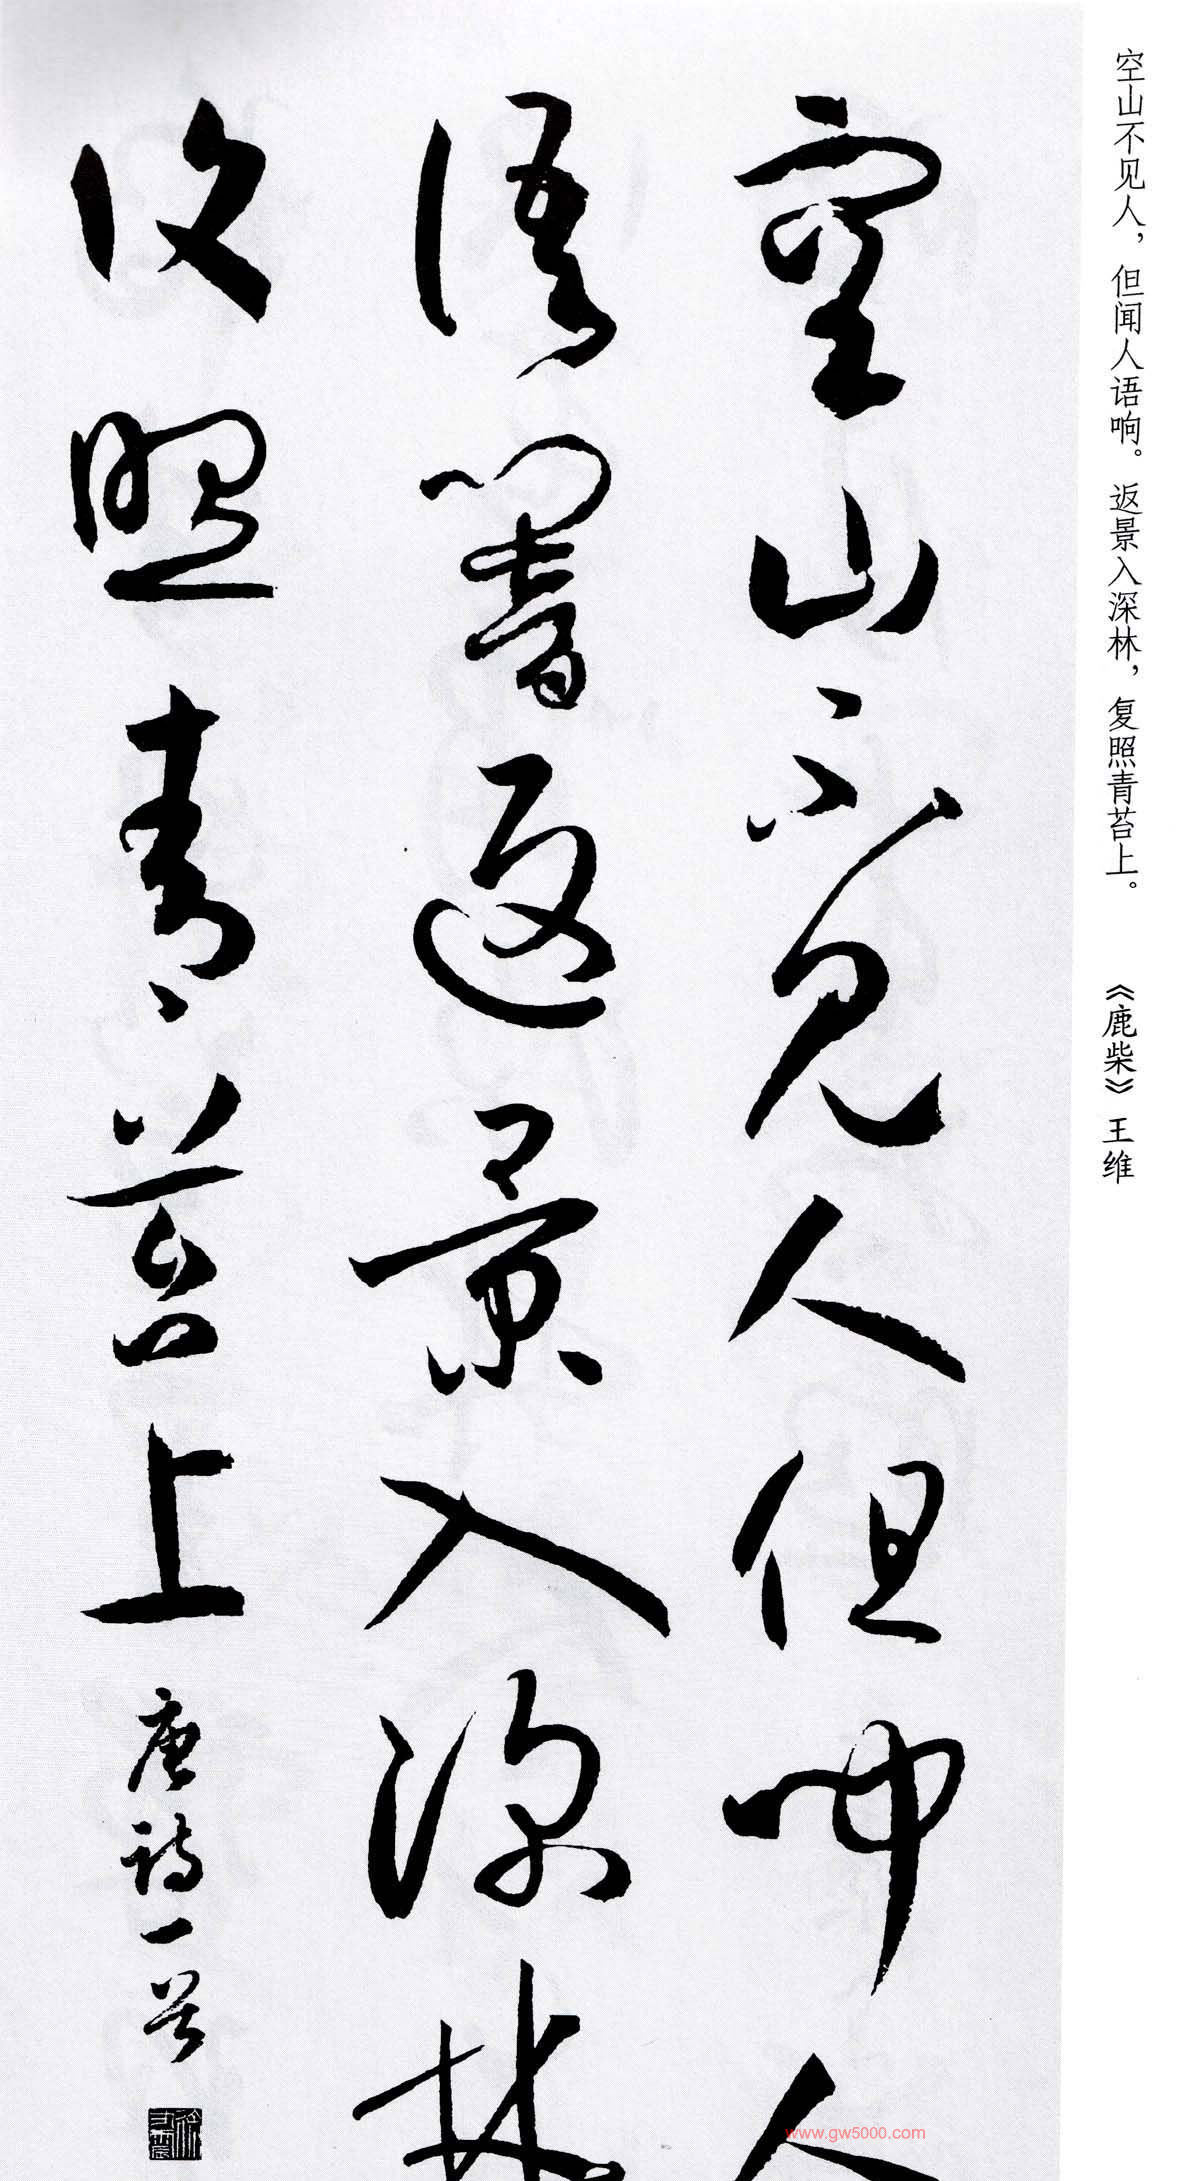 空山不见人，但闻人语响。返景入深林，复照青苔上。 《鹿柴》 王维
空山不見人但聞人
語響返景入深林
復照青苔上
唐詩一首
www.gw5000.com